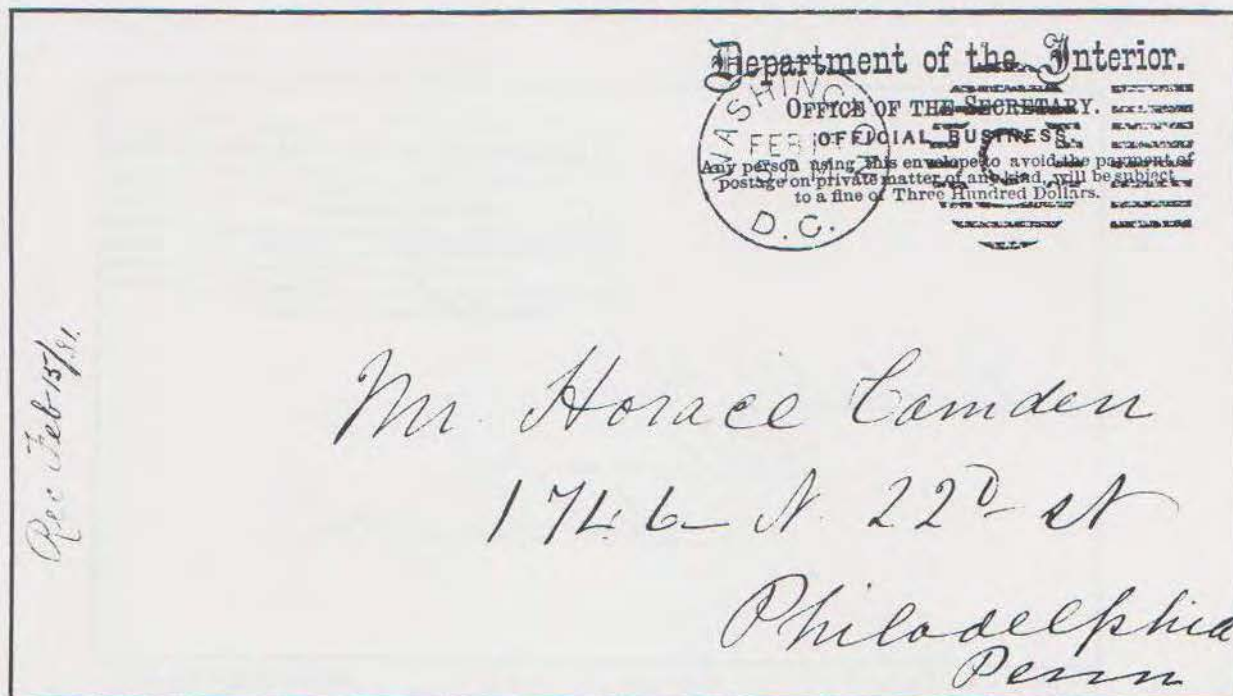 Department of the Interior.
OFFICE OF THE SECRETARY.
OFFICIAL BUSINESS.
Any person using this envelope to avoid the payment of
postage on private matter of any kind, will be subject
to a fine of Three Hundred Dollars.
WASHINGTON
FEB
D.C.
Rec Feb 15/81.
Mr. Horace Camden
1746 N. 22D st
Philadelphia
Penn